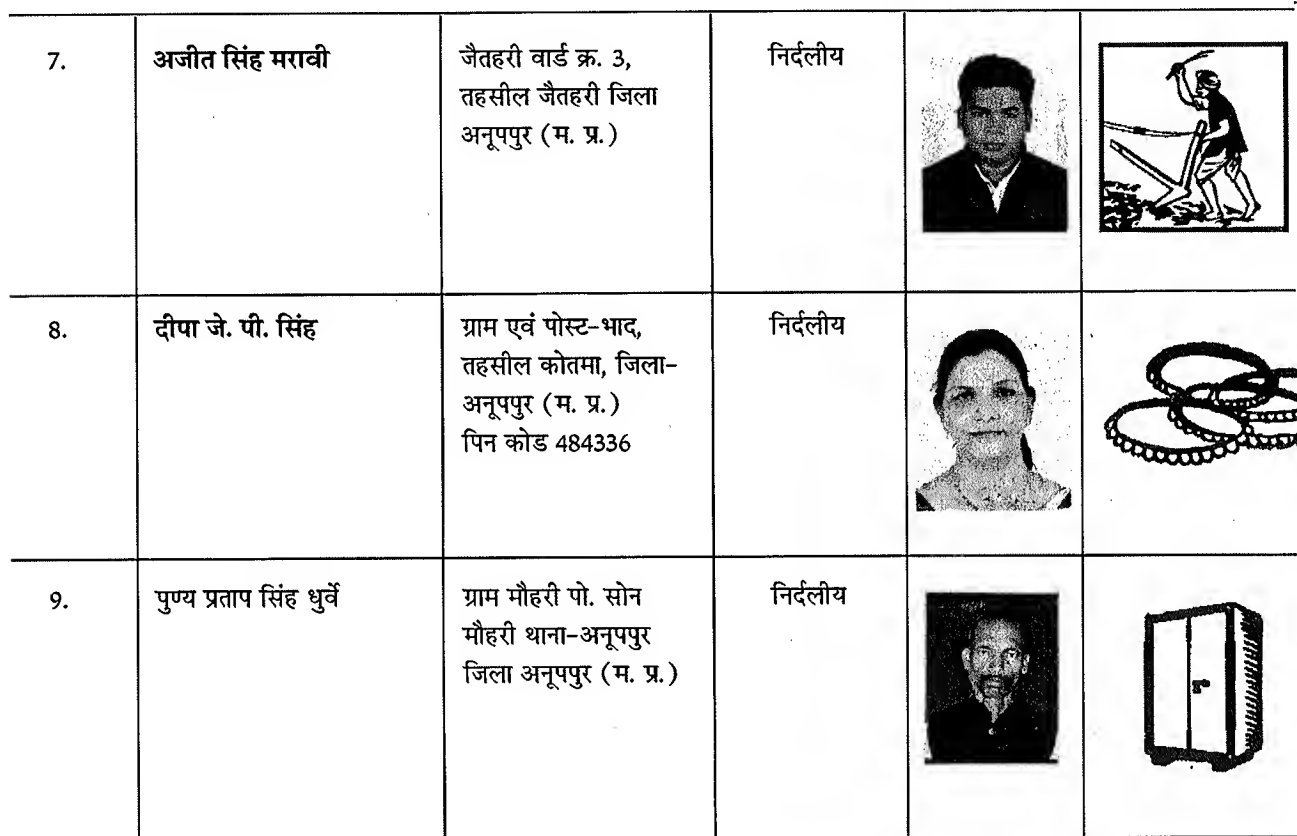 7.
अजीत सिंह मरावी
जैतहरी वार्ड क्र. 3,
तहसील जैतहरी जिला
अनूपपुर (म. प्र.)
निर्दलीय
8.
दीपा जे. पी. सिंह
ग्राम एवं पोस्ट-भाद,
तहसील कोतमा, जिला-
अनूपपुर (म. प्र.)
पिन कोड 484336
निर्दलीय
9.
पुण्य प्रताप सिंह धुर्वे
ग्राम मौहरी पो. सोन
मौहरी थाना-अनूपपुर
जिला अनूपपुर (म. प्र.)
निर्दलीय